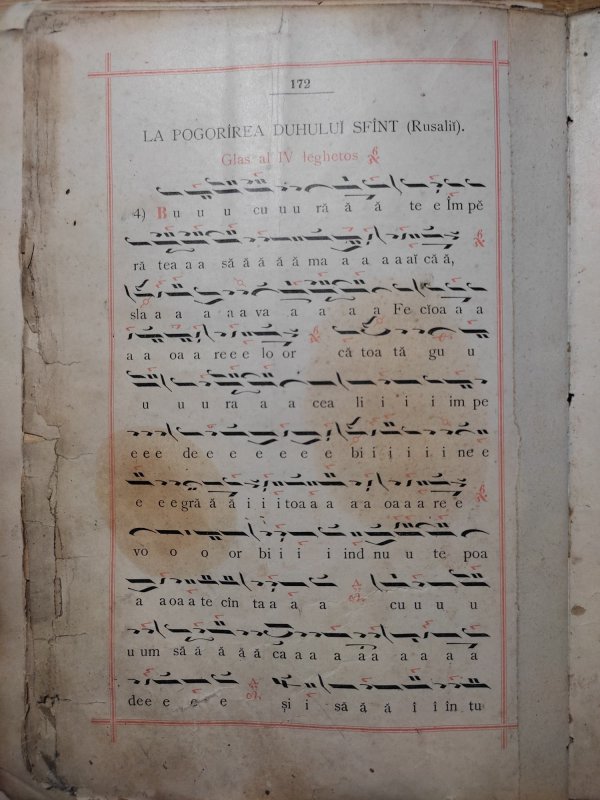 172
LA POGORÎREA DUHULUĬ SFÎNT (Rusaliĭ).
Glas al IV leghetos
4) B u u u cu u u ră ă ă te e Îm pĕ
ră tea a a să ă ă ă ă ma a a a aĭ că ă,
sla a a a a a va a a a a Fe cĭoa a a
a a oa a re e e lo or că toa tă gu u
u u u ra a a cea li i i i im pe
e e e de e e e e e bi i i i i i ne e
e e e gră ă ă i i i toa a a a a oa a a re e
vo o o or bi i i i ind nu u te poa
a a oa a te cîn ta a a a cu u u u
u um să ă ă ă ă ca a a a a a a a a a
de e e e e e și i să ă ă î î în tu